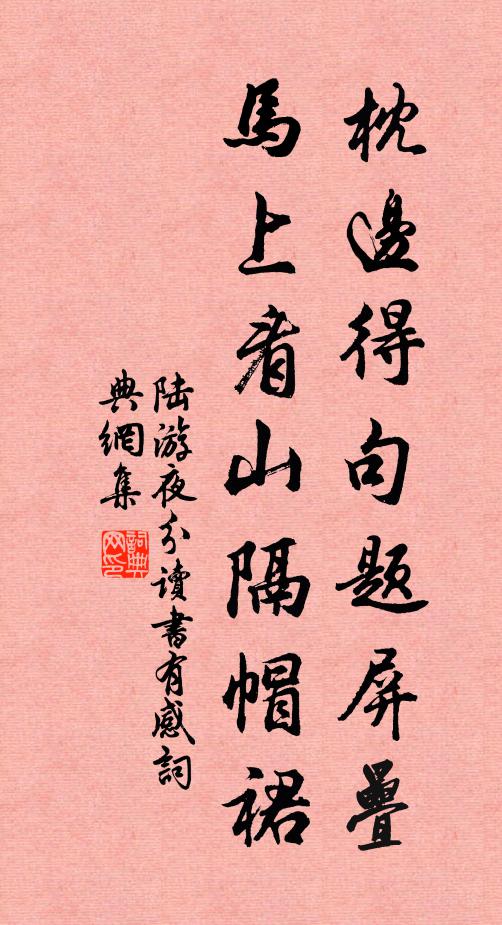 枕邊得句題屏疊
馬上看山隔帽裙
陆游夜分讀書有感詞
典網集
詞典网印